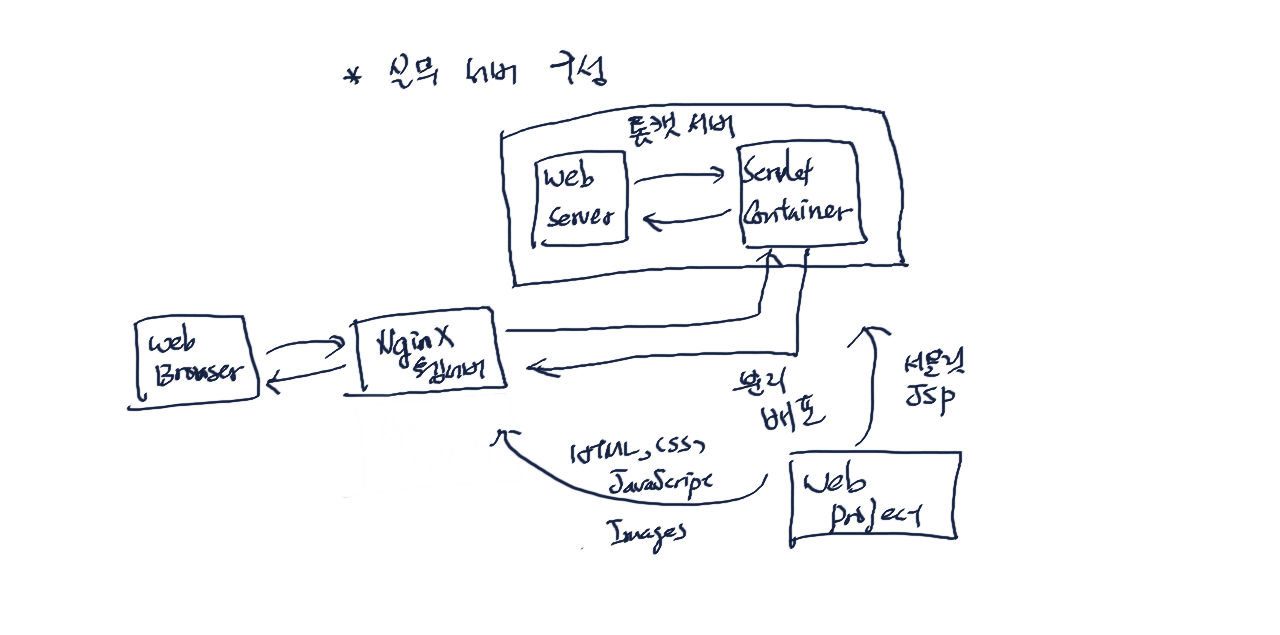 * 실무 서버 구성
톰캣 서버
Web
Server
Servlet
Container
Web
Browser
NginX
웹서버
분리
배포
서블릿
JSP
HTML, CSS,
JavaScript
Images
Web
Project